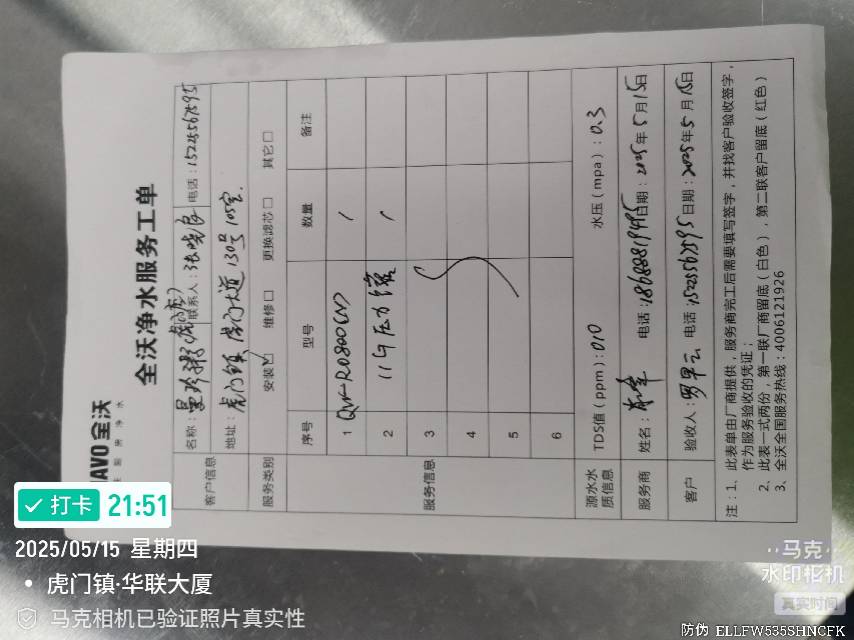 全沃
全沃净水服务工单
客户信息
名称：
联系人：
电话：15225567595
地址：虎门镇 虎门大道130号105室.
服务类别
安装☑ 维修□ 更换滤芯□ 其它□
服务信息
序号 型号 数量 备注
1
2 11G压力罐
3
4
5
6
源水水质信息
TDS值（ppm）：010 水压（mpa）：0.3
服务商
姓名： 电话：18688819495 日期：2025年5月15日
客户
验收人： 电话：15225567595 日期：2025年5月15日
注：1、此表单由厂商提供，服务商完工后需要填写签字，并找客户验收签字，
作为服务验收的凭证；
2、此表一式两份，第一联厂商留底（白色），第二联客户留底（红色）
3、全沃全国服务热线：4006121926
打卡 21:51
2025/05/15 星期四
虎门镇·华联大厦
马克相机已验证照片真实性
马克
水印相机
真实时间
防伪 ELLFW535SHNCFK